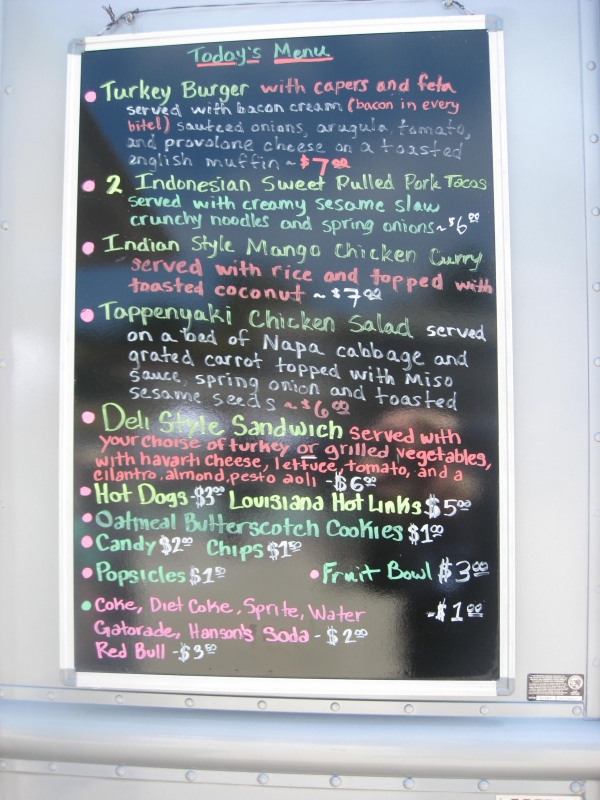 Today's Menu
Turkey Burger with capers and feta
served with bacon cream (bacon in every
bite!) sauteed onions, arugula, tomato,
and provolone cheese on a toasted
english muffin ~ $7.00
2 Indonesian Sweet Pulled Pork Tacos
served with creamy sesame slaw
crunchy noodles and spring onions ~ $6.00
Indian Style Mango Chicken Curry
served with rice and topped with
toasted coconut ~ $7.00
Tappenyaki Chicken Salad served
on a bed of Napa cabbage and
grated carrot topped with Miso
sauce, spring onion and toasted
sesame seeds ~ $6.00
Deli Style Sandwich served with
your choise of turkey or grilled vegetables,
with havarti cheese, lettuce, tomato, and a
cilantro, almond, pesto aoli - $6.00
Hot Dogs - $3.00 Louisiana Hot Links $5.00
Oatmeal Butterscotch Cookies $1.00
Candy $2.00 Chips $1.50
Popsicles $1.50 Fruit Bowl $3.00
Coke, Diet Coke, Sprite, Water - $1.00
Gatorade, Hanson's Soda - $2.00
Red Bull - $3.00